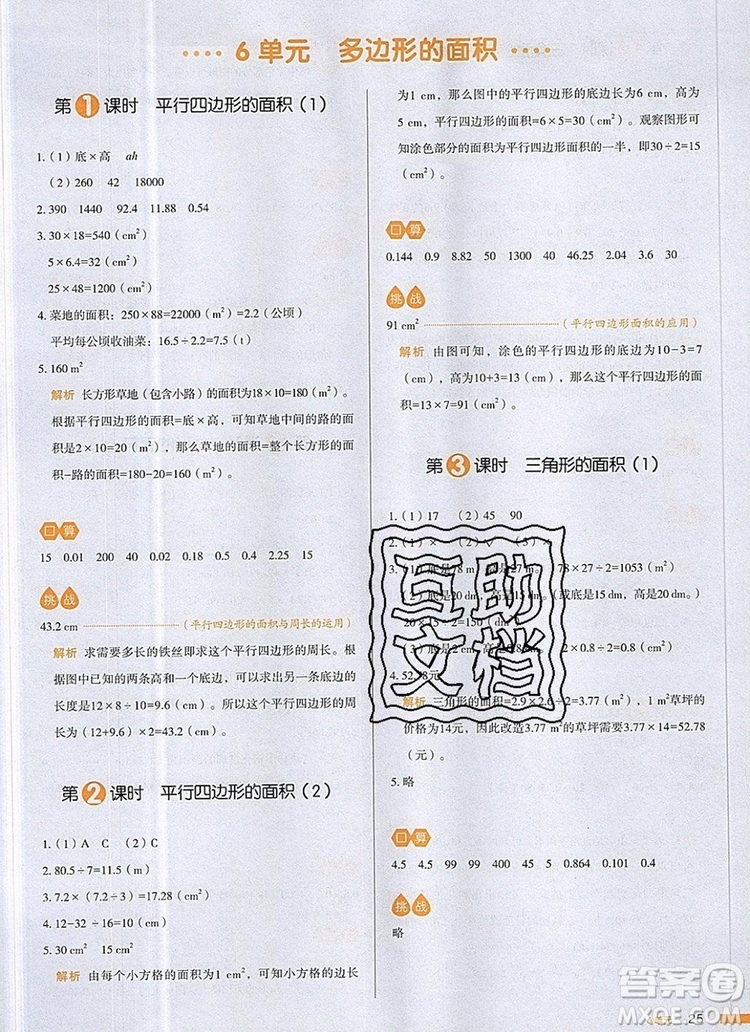 6 单元 多边形的面积
第1课时 平行四边形的面积（1）
1.（1）底×高 ah
（2）260 42 18000
2. 390 1440 92.4 11.88 0.54
3. 30×18=540（cm²）
5×6.4=32（cm²）
25×48=1200（cm²）
4. 菜地的面积：250×88=22000（m²）=2.2（公顷）
平均每公顷收油菜：16.5÷2.2=7.5（吨）
5. 160 m²
解析 长方形草地（包含小路）的面积为18×10=180（m²）。
根据平行四边形的面积=底×高，可知草地中间的路的面
积是2×10=20（m²），那么草地的面积=整个长方形的面
积-路的面积=180-20=160（m²）。
口算
15 0.01 200 40 0.02 0.18 20 0.4 2.25 15
挑战
43.2 cm （平行四边形的面积与周长的运用）
解析 求需要多长的铁丝即求这个平行四边形的周长。根
据图中已知的两条高和一个底边，可以求出另一底边的
长度是12×8÷10=9.6（cm）。所以这个平行四边形的周
长为（12+9.6）×2=43.2（cm）。
第2课时 平行四边形的面积（2）
1.（1）A C （2）C
2. 80.5÷7=11.5（m）
3. 7.2×（7.2÷3）=17.28（cm²）
4. 12-32÷16=10（cm）
5. 30 cm² 15 cm²
解析 由每个小方格的面积为1 cm²，可知小方格的边长
为1 cm，那么图中的平行四边形的底边长为6 cm，高为
5 cm，平行四边形的面积=6×5=30（cm²）。观察图形可
知涂色部分的面积是平行四边形面积的一半，即30÷2=15
（cm²）。
口算
0.144 0.9 8.82 50 1300 40 46.25 2.04 3.6 30
挑战
91 cm² （平行四边形面积的应用）
解析 由图可知，涂色的平行四边形的底边为10-3=7
（cm），高为10+3=13（cm），所以涂色的平行四边形的面
积=13×7=91（cm²）。
第3课时 三角形的面积（1）
1.（1）17 （2）45 90
2.（1）×（2）√（3）
3.（1）底是78 m，高是27 m。 78×27÷2=1053（m²）
20 dm。（或底是20 dm，高是15 dm。）
20×15÷2=150（dm²）
（3）底是2 2×0.8÷2=0.8（m²）
4. 52.78元
解析 三角形的面积=2.9×2.6÷2=3.77（m²），1 m²草坪的
价格为14元，因此改造3.77 m²的草坪需要3.77×14=52.78
（元）。
5. 略
口算
4.5 4.5 99 99 400 45 5 0.864 0.101 0.4
挑战
略
互助
文档
答案圈
MXQE.COM
25